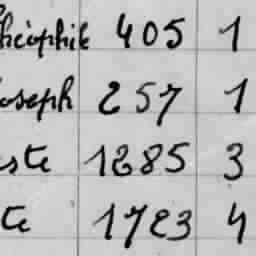 Théophile 405 1
Joseph 257 1
ste 1285 3
te 1723 4